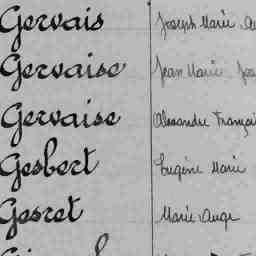 Gervais Joseph Marie
Gervaise Jean Marie
Gervaise Alexandre Françoi
Gesbert Eugène Marie
Gesret Marie Ange